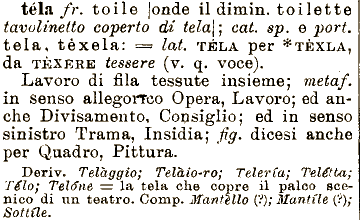 téla fr. toile [onde il dimin. toilette
tavolinetto coperto di tela]; cat. sp. e port.
tela, tèxela: = lat. TÉLA per *TÈXLA,
da TÈXERE tessere (v. q. voce).
Lavoro di fila tessute insieme; metaf.
in senso allegorico Opera, Lavoro; ed an-
che Divisamento, Consiglio; ed in senso
sinistro Trama, Insidia; fig. dicesi anche
per Quadro, Pittura.
Deriv. Telàggio; Telàio-ro; Telería; Telétta;
Télo; Telóne = la tela che copre il palco sce-
nico di un teatro. Comp. Mantèllo (?); Mantíle (?);
Sottíle.